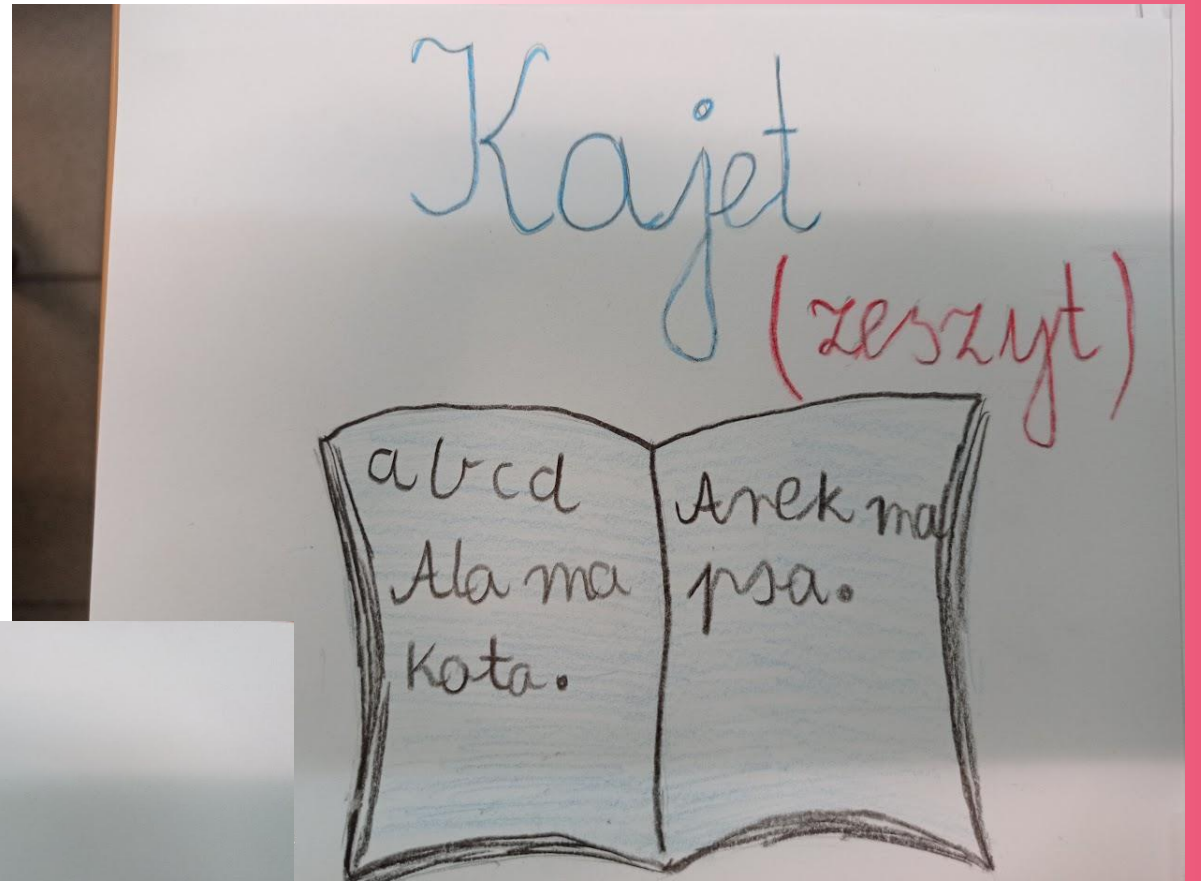 Kajet
(zeszyt)
abcd
Ala ma
kota.
Arek ma
psa.